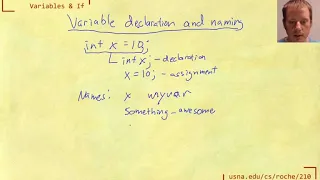 Variables & If
Variable declaration and naming
int x = 10;
int x; - declaration
x = 10; - assignment
Names: x myvar
Something_awesome
usna.edu/cs/roche/210